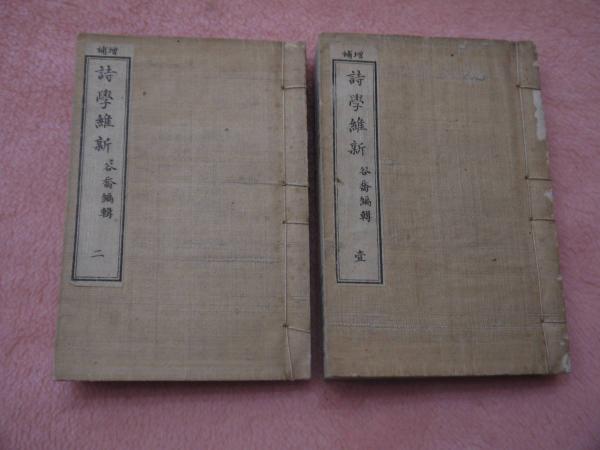 増補
詩學維新
谷喬編輯
壹
増補
詩學維新
谷喬編輯
二